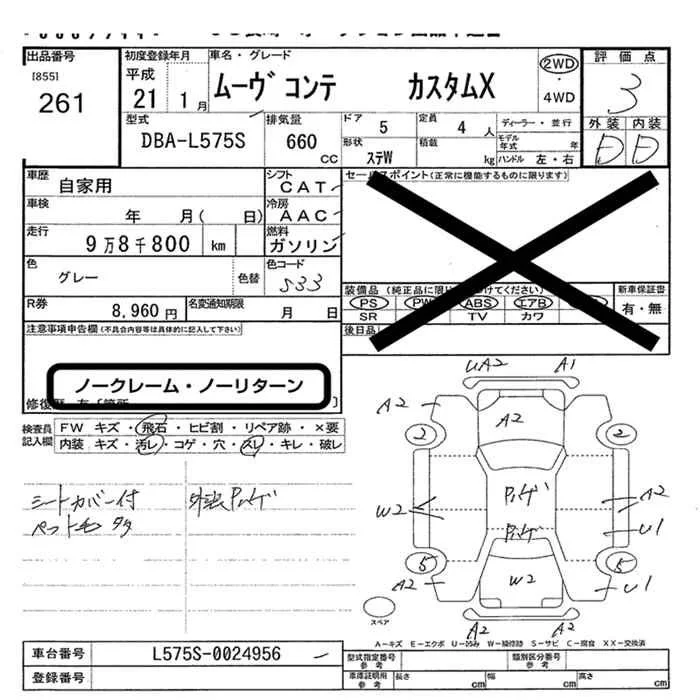 出品番号
[855]
261
初度登録年月
平成
21 1月
車名・グレード
ムーヴ コンテ カスタムX
2WD
4WD
評価点
3
外装 内装
D D
型式
DBA-L575S
排気量
660 CC
ドア 5
定員 4 人
ディーラー・並行
形状 ステW
積載 kg
モデル年式 年
ハンドル 左・右
車歴
自家用
シフト
CAT
セールスポイント(正常に機能するものに限ります)
車検
年 月( 日)
冷房
AAC
走行
9万8千800 km
燃料
ガソリン
色
グレー
色替
色コード
S33
装備品(純正品に限り けてください)
新車保証書
PS PW ABS エアB
有・無
SR TV カワ
R券
8,960円
名変通知期限
月 日
後日品
注意事項申告欄(不具合内容等は具体的に記入して下さい)
ノークレーム・ノーリターン
検査員記入欄
FW キズ・飛石・ヒビ割・リペア跡・×要
内装 キズ・汚レ・コゲ・穴・スレ・キレ・破レ
シートカバー付
ペット毛多
UA2 A1
A2 A2
2 2
W2 A2
U1
5 5
A2 W2 U1
A2 A2
スペア
A-キズ E-エクボ U-凹み W-補修跡 S-サビ C-腐食 XX-交換済
車台番号
L575S-0024956
登録番号
型式指定番号
参考
類別区分番号
参考
車庫証明用
参考
長さ cm
幅 cm
高さ cm